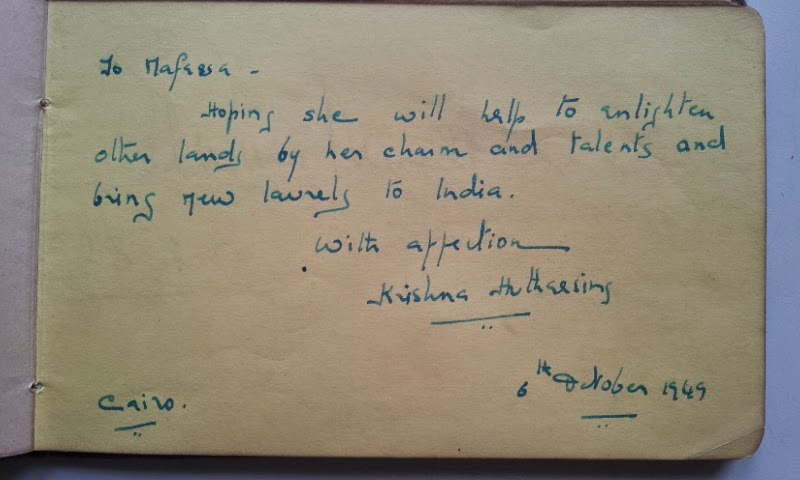 To Nafessa -
Hoping she will help to enlighten
other lands by her charm and talents and
bring new laurels to India.
With affection
Krishna Hutheesing
6th October 1949
Cairo.